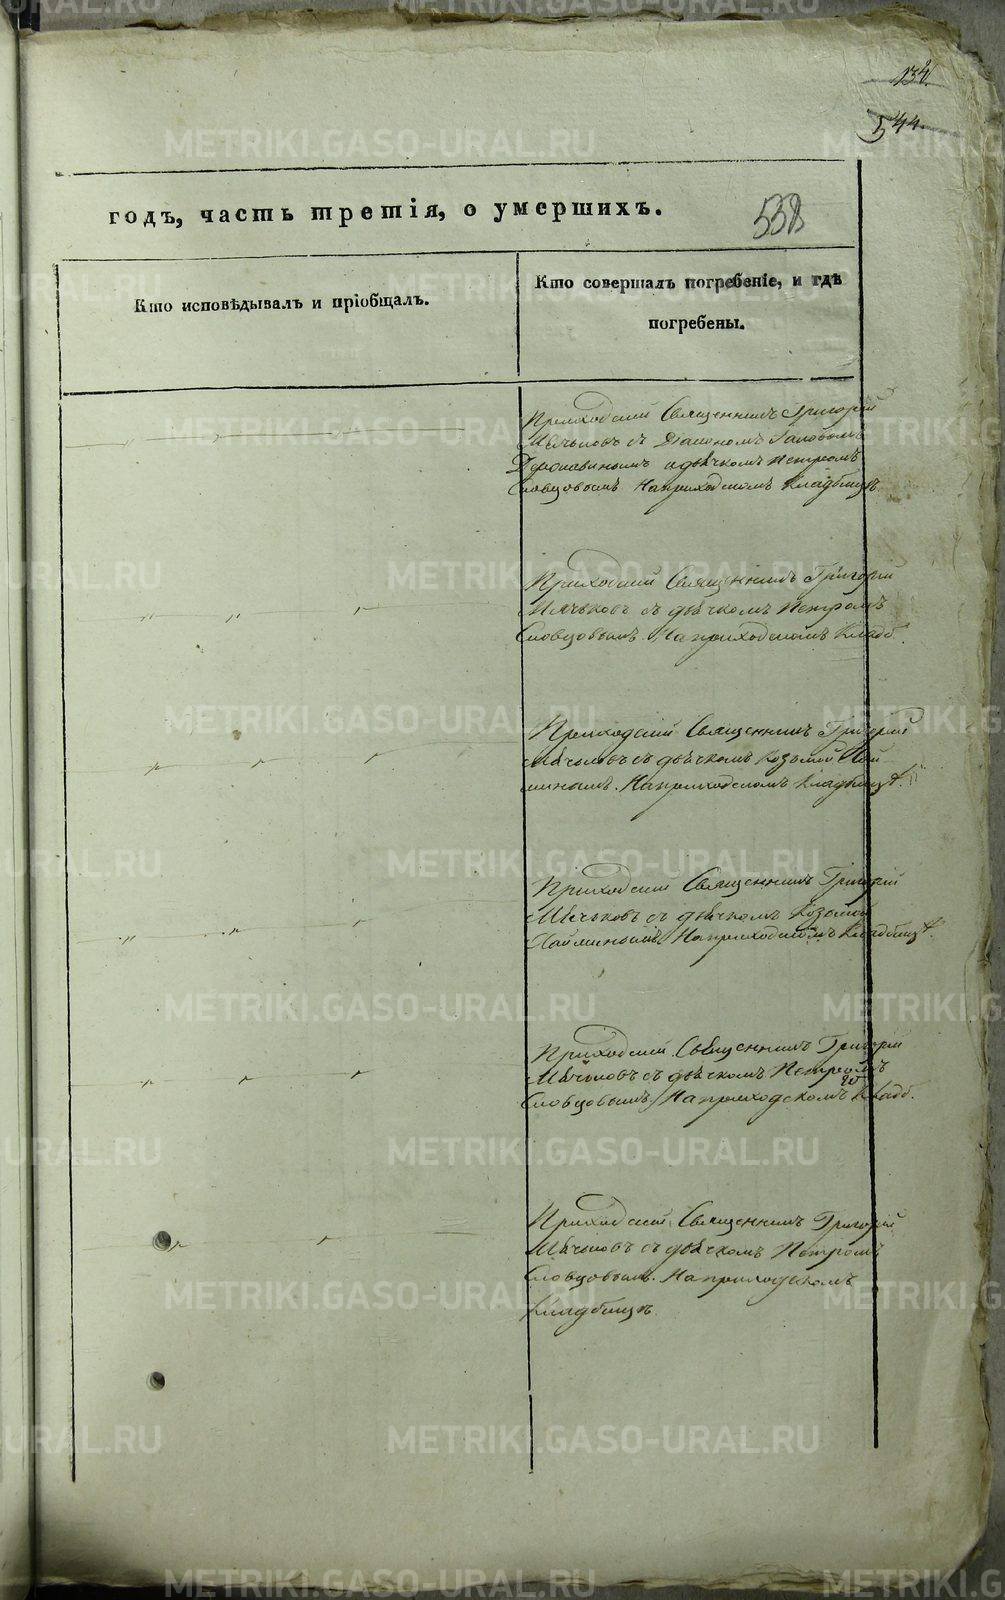 134
544.
годъ, часть третія, о умершихъ.
538
Кто исповѣдывалъ и пріобщалъ.
Кто совершалъ погребеніе, и гдѣ
погребены.
Приходскій Священникъ Григорій
Мячьковъ съ Діакономъ
и дьячкомъ Петромъ
Словцовымъ На приходскомъ Кладбищѣ.
Приходскій Священникъ Григорій
Мячьковъ съ дьячкомъ Петромъ
Словцовымъ. На приходскомъ Кладб.
Приходскій Священникъ Григорій
Мячьковъ съ дьячкомъ Козьмой
На приходскомъ Кладбищѣ.
Приходскій Священникъ Григорій
Мячьковъ съ дьячкомъ Козьмой
На приходскомъ Кладбищѣ.
Приходскій Священникъ Григорій
Мячьковъ съ дьячкомъ Петромъ
Словцовымъ На приходскомъ Кладб.
Приходскій Священникъ Григорій
Мячьковъ съ дьячкомъ Петромъ
Словцовымъ. На приходскомъ
Кладбищѣ.
METRIKI.GASO-URAL.RU